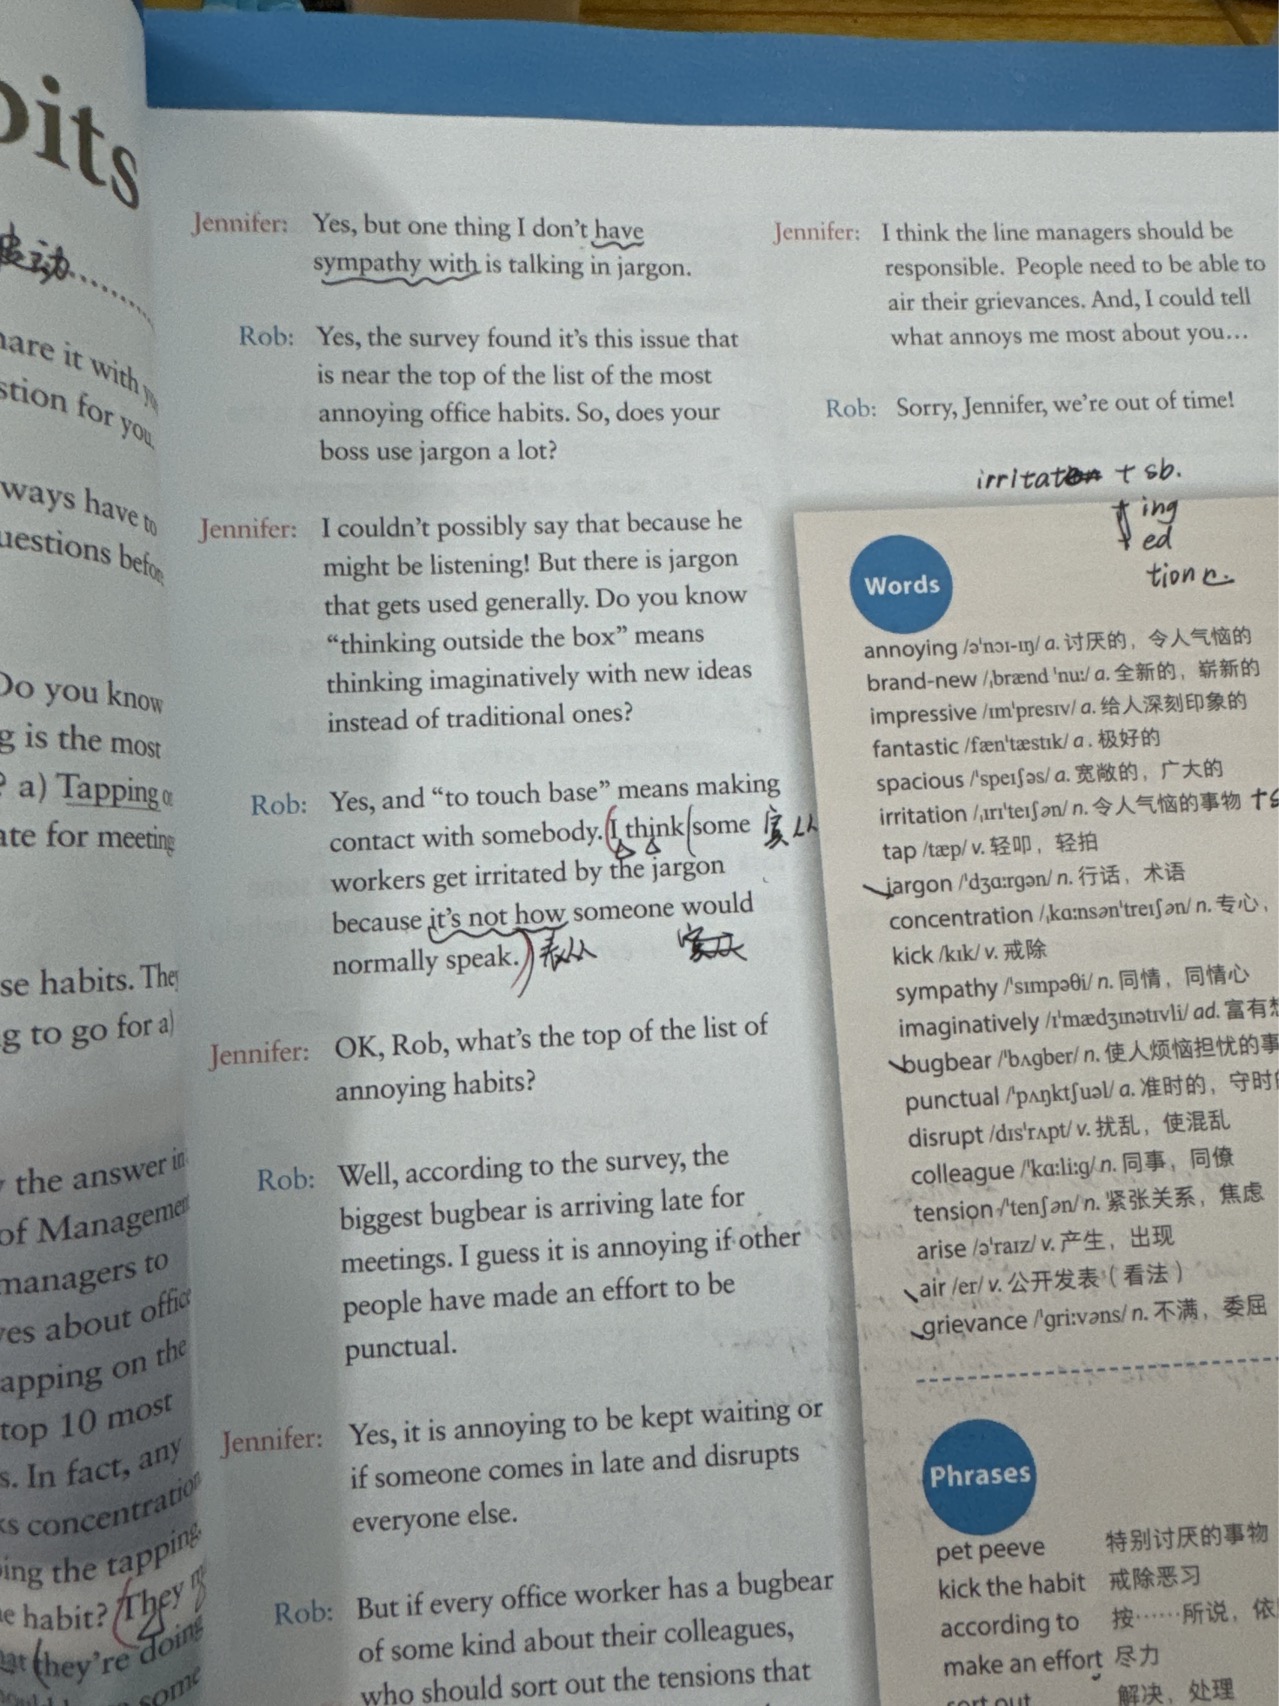 bits
hare it with
stion for you.
ways have to
uestions before
Do you know
g is the most
? a) Tapping
ate for meeting
se habits. They
g to go for a)
the answer in
of Management
managers to
ves about office
apping on the
top 10 most
s. In fact, any
ks concentration
ing the tapping.
e habit? They
they're doing
some
Jennifer: Yes, but one thing I don't have
sympathy with is talking in jargon.
Rob: Yes, the survey found it's this issue that
is near the top of the list of the most
annoying office habits. So, does your
boss use jargon a lot?
Jennifer: I couldn't possibly say that because he
might be listening! But there is jargon
that gets used generally. Do you know
“thinking outside the box” means
thinking imaginatively with new ideas
instead of traditional ones?
Rob: Yes, and “to touch base” means making
contact with somebody. I think some
workers get irritated by the jargon
because it's not how someone would
normally speak. 表从
Jennifer: OK, Rob, what's the top of the list of
annoying habits?
Rob: Well, according to the survey, the
biggest bugbear is arriving late for
meetings. I guess it is annoying if other
people have made an effort to be
punctual.
Jennifer: Yes, it is annoying to be kept waiting or
if someone comes in late and disrupts
everyone else.
Rob: But if every office worker has a bugbear
of some kind about their colleagues,
who should sort out the tensions that
Jennifer: I think the line managers should be
responsible. People need to be able to
air their grievances. And, I could tell
what annoys me most about you…
Rob: Sorry, Jennifer, we're out of time!
+ sb.
ing
ed
tion n.
Words
annoying /ə'nɔɪ-ɪŋ/ a. 讨厌的，令人气恼的
brand-new /ˌbrænd 'nuː/ a. 全新的，崭新的
impressive /ɪm'presɪv/ a. 给人深刻印象的
fantastic /fæn'tæstɪk/ a. 极好的
spacious /'speɪʃəs/ a. 宽敞的，广大的
irritation /ˌɪrɪ'teɪʃən/ n. 令人气恼的事物
tap /tæp/ v. 轻叩，轻拍
jargon /'dʒɑːrgən/ n. 行话，术语
concentration /ˌkɑːnsən'treɪʃən/ n. 专心，
kick /kɪk/ v. 戒除
sympathy /'sɪmpəθi/ n. 同情，同情心
imaginatively /ɪ'mædʒɪnətɪvli/ ad. 富有想
bugbear /'bʌgber/ n. 使人烦恼担忧的事
punctual /'pʌŋktʃuəl/ a. 准时的，守时的
disrupt /dɪs'rʌpt/ v. 扰乱，使混乱
colleague /'kɑːliːg/ n. 同事，同僚
tension /'tenʃən/ n. 紧张关系，焦虑
arise /ə'raɪz/ v. 产生，出现
air /er/ v. 公开发表（看法）
grievance /'griːvəns/ n. 不满，委屈
Phrases
pet peeve 特别讨厌的事物
kick the habit 戒除恶习
according to 按……所说，依
make an effort 尽力
sort out 解决，处理